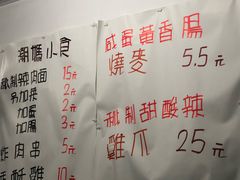 潮媽小食
秘制辣肉面 15元
多加菜 2元
加蛋 2元
加腸 3元
炸肉串 5元
10元
咸蛋黄香腸
燒麥 5.5元
秘制甜酸辣
雞爪 25元